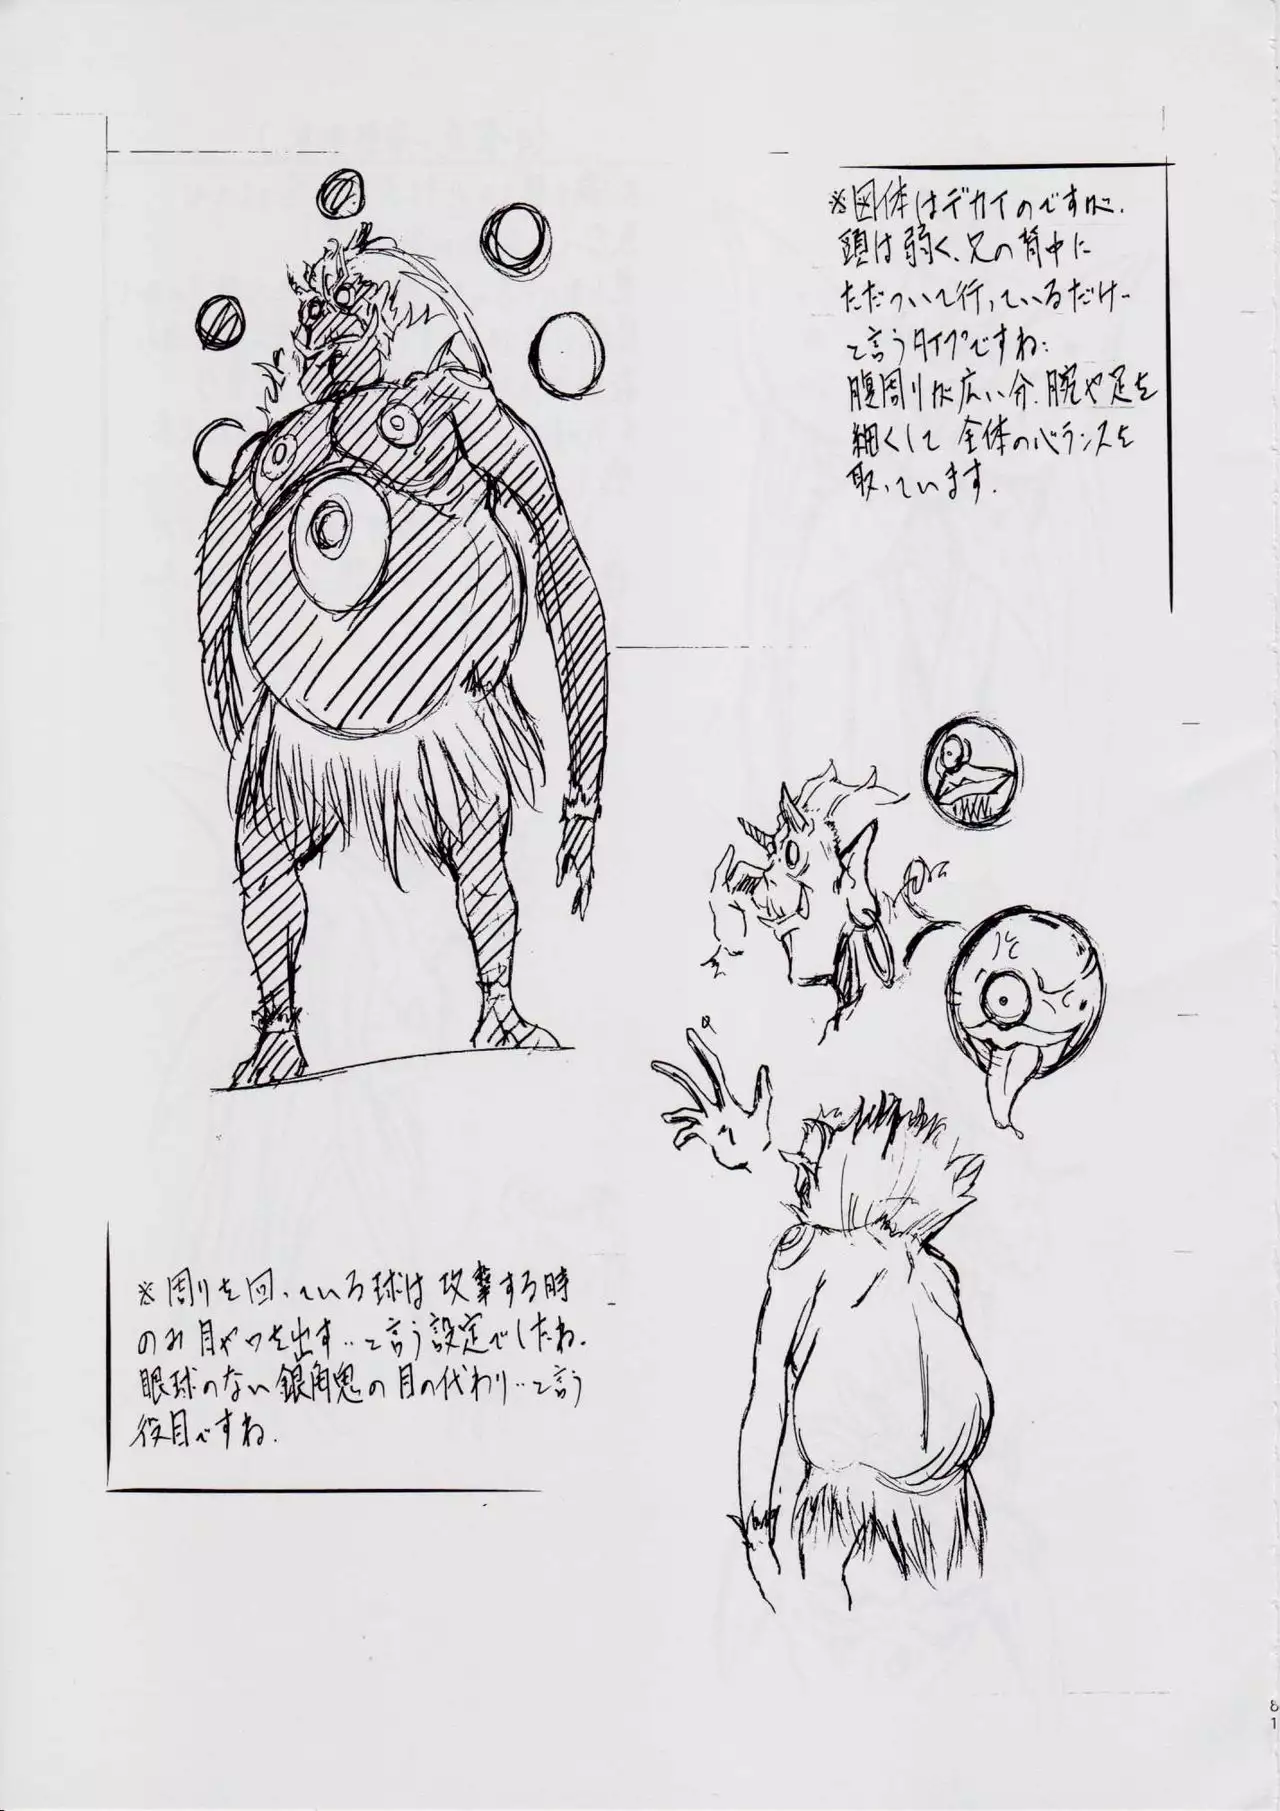 ※図体はデカイのですが、
頭は弱く、兄の背中に
ただついて行っているだけ…
と言うタイプですね…
腹周りが広い分、腕や足を
細くして全体のバランスを
取っています.
※周りを回っている球は攻撃する時
のみ目や口を出す…と言う設定でしたね.
眼球のない銀角鬼の目の代わり…と言う
役目ですね.
81